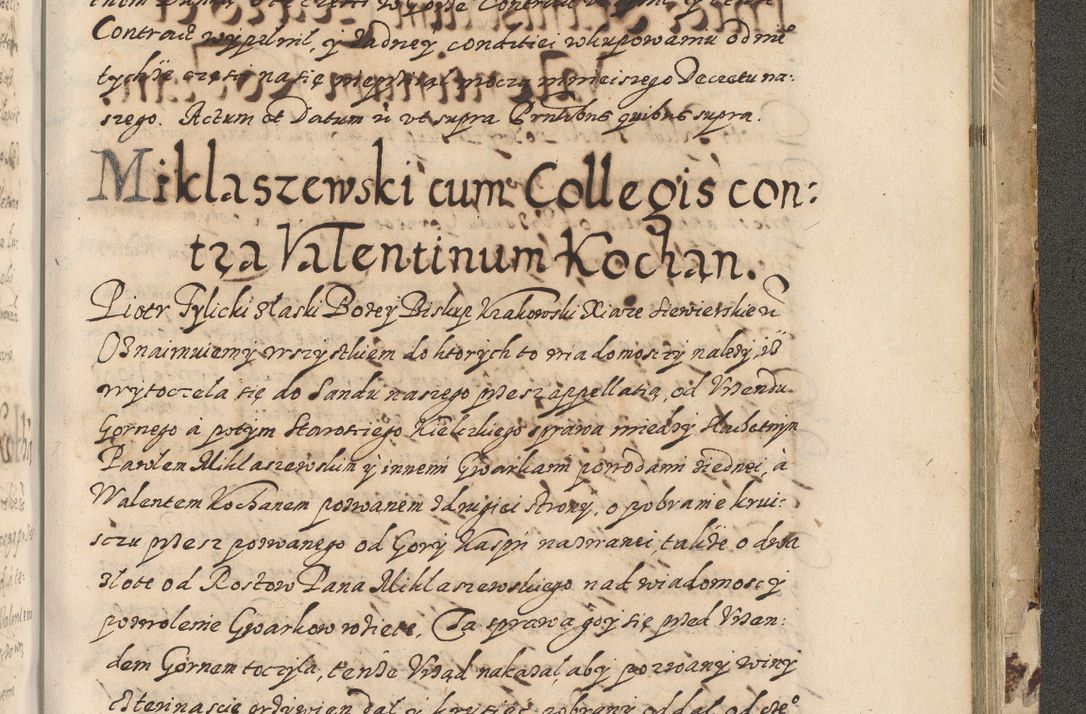 Contract wypełnił, y żadney conditiei wkupowaniu od nie°
tychże części na się nie przyiął moczą ninieiszego Decretu na:
szego. Actum et Datum ut supra Pr̃ntibus quibus supra.
Miklaszewski cum Collegis con:
tra Valentinum Kochan.
Piotr Tylicki z łaski Bożey Biskup Krakowski Xiąże Siewierskie
Oznaimuiemy wszystkiem do ktorych to wiadomoszczy należy, iż
wytoczeła się do Sandu naszego przesz appellatią, od Vrzendu
Gornego à potym Starostiego Kieleczkiego sprawa miedzy szlachetnym
Pawłem Miklaszewskim y innemi Gwarkami powodami z iednei, a
Walentem Kochanem pozwanem z drugiei strony, o pobranie krui:
sczu przesz pozwanego od Gory Kaspri nazwanei, także o dwa
złote od Rostow Pana Miklaszewskiego nad wiadomosc y
pozwolenie Gwarkow wzięte. Ta sprawa gdy się przed Vrzen:
dem Gornem toczyła, tenże Vrząd nakazał, aby pozwany winy
czternascie grzywien dał y kruszec pobrany oddał, od cze°